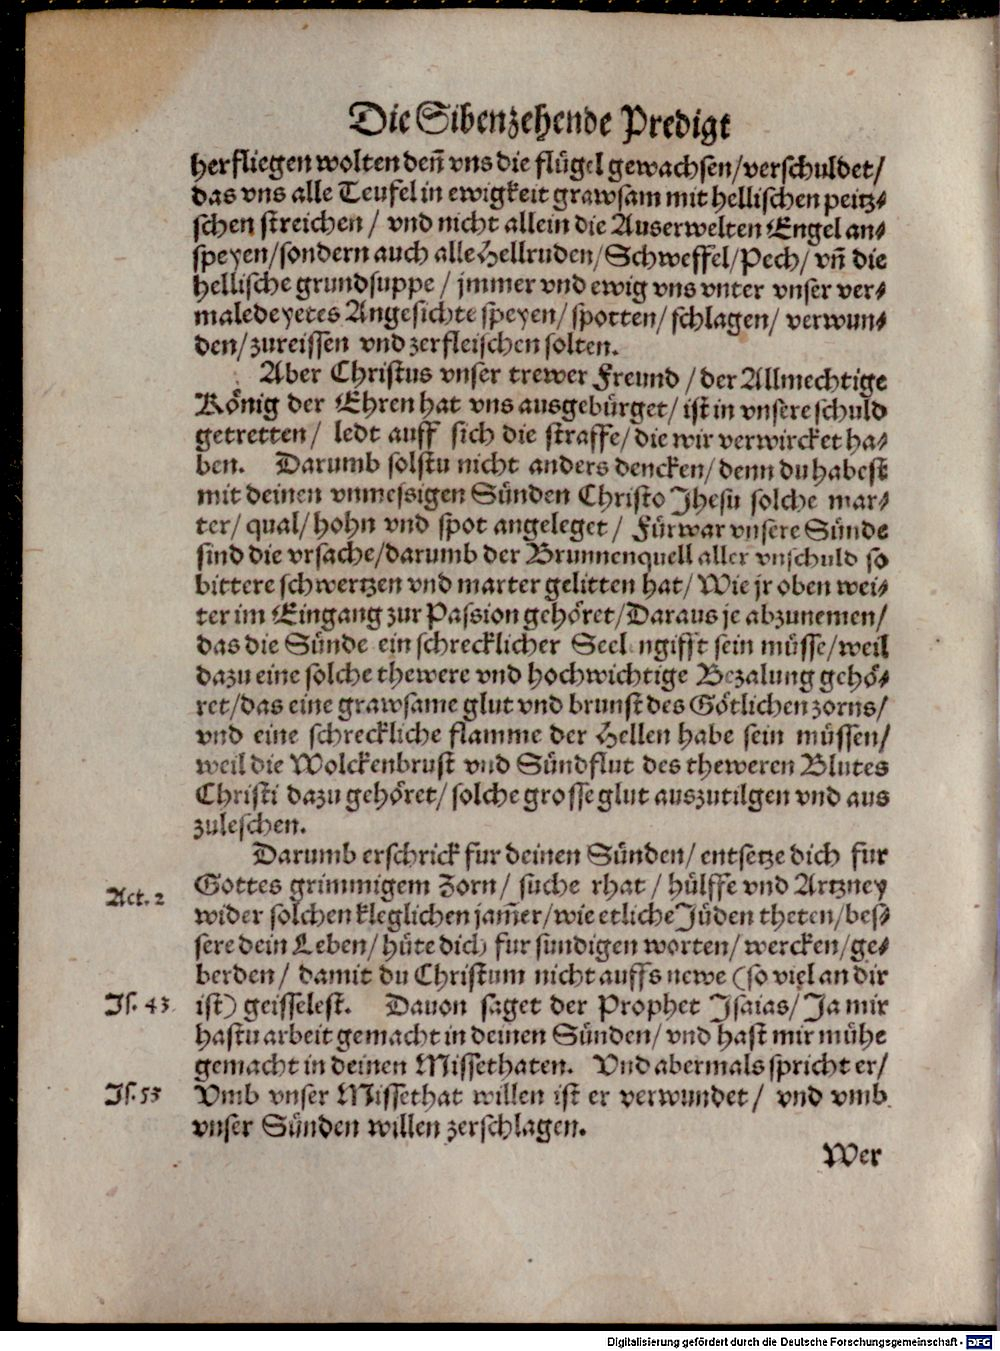 Die Sibenzehende Predigt
herfliegen wolten deñ vns die flügel gewachsen/verschuldet/
das vns alle Teufel in ewigkeit grawsam mit hellischen peitz⸗
schen streichen / vnd nicht allein die Auserwelten Engel an⸗
speyen/sondern auch alle Hellruden/Schweffel/Pech/ vñ die
hellische grundsuppe / jmmer vnd ewig vns vnter vnser ver⸗
maledeyetes Angesichte speyen/ spotten/ schlagen/ verwun⸗
den/zureissen vnd zerfleischen solten.
Aber Christus vnser trewer Freund / der Allmechtige
König der Ehren hat vns ausgebürget/ ist in vnsere schuld
getretten/ ledt auff sich die straffe/ die wir verwircket ha⸗
ben. Darumb solstu nicht anders dencken/ denn du habest
mit deinen vnmessigen Sünden Christo Jhesu solche mar⸗
ter/ qual/ hohn vnd spot angeleget / Fürwar vnsere Sünde
sind die vrsache/darumb der Brunnenquell aller vnschuld so
bittere schwertzen vnd marter gelitten hat/ Wie jr oben wei⸗
ter im Eingang zur Passion gehöret/Daraus je abzunemen/
das die Sünde ein schrecklicher Seel ngifft sein müsse/weil
dazu eine solche thewere vnd hochwichtige Bezalung gehö⸗
ret/das eine grawsame glut vnd brunst des Götlichen zorns/
vnd eine schreckliche flamme der Hellen habe sein müssen/
weil die Wolckenbrust vnd Sündflut des theweren Blutes
Christi dazu gehöret/ solche grosse glut auszutilgen vnd aus
zuleschen.
Darumb erschrick fur deinen Sünden/ entsetze dich fur
Gottes grimmigem Zorn/ suche rhat / hülffe vnd Artzney
Act. 2
wider solchen kleglichen jam̃er/wie etliche Jüden theten/bes⸗
sere dein Leben/ hüte dich fur sundigen worten/ wercken/ge⸗
berden/ damit du Christum nicht auffs newe (so viel an dir
Js. 43. ist) geisselest. Dauon saget der Prophet Jsaias/ Ja mir
hastu arbeit gemacht in deinen Sünden/ vnd hast mir mühe
gemacht in deinen Missethaten. Vnd abermals spricht er/
Js. 53 Vmb vnser Missethat willen ist er verwundet/ vnd vmb
vnser Sünden willen zerschlagen.
Wer
Digitalisierung gefördert durch die Deutsche Forschungsgemeinschaft - DFG